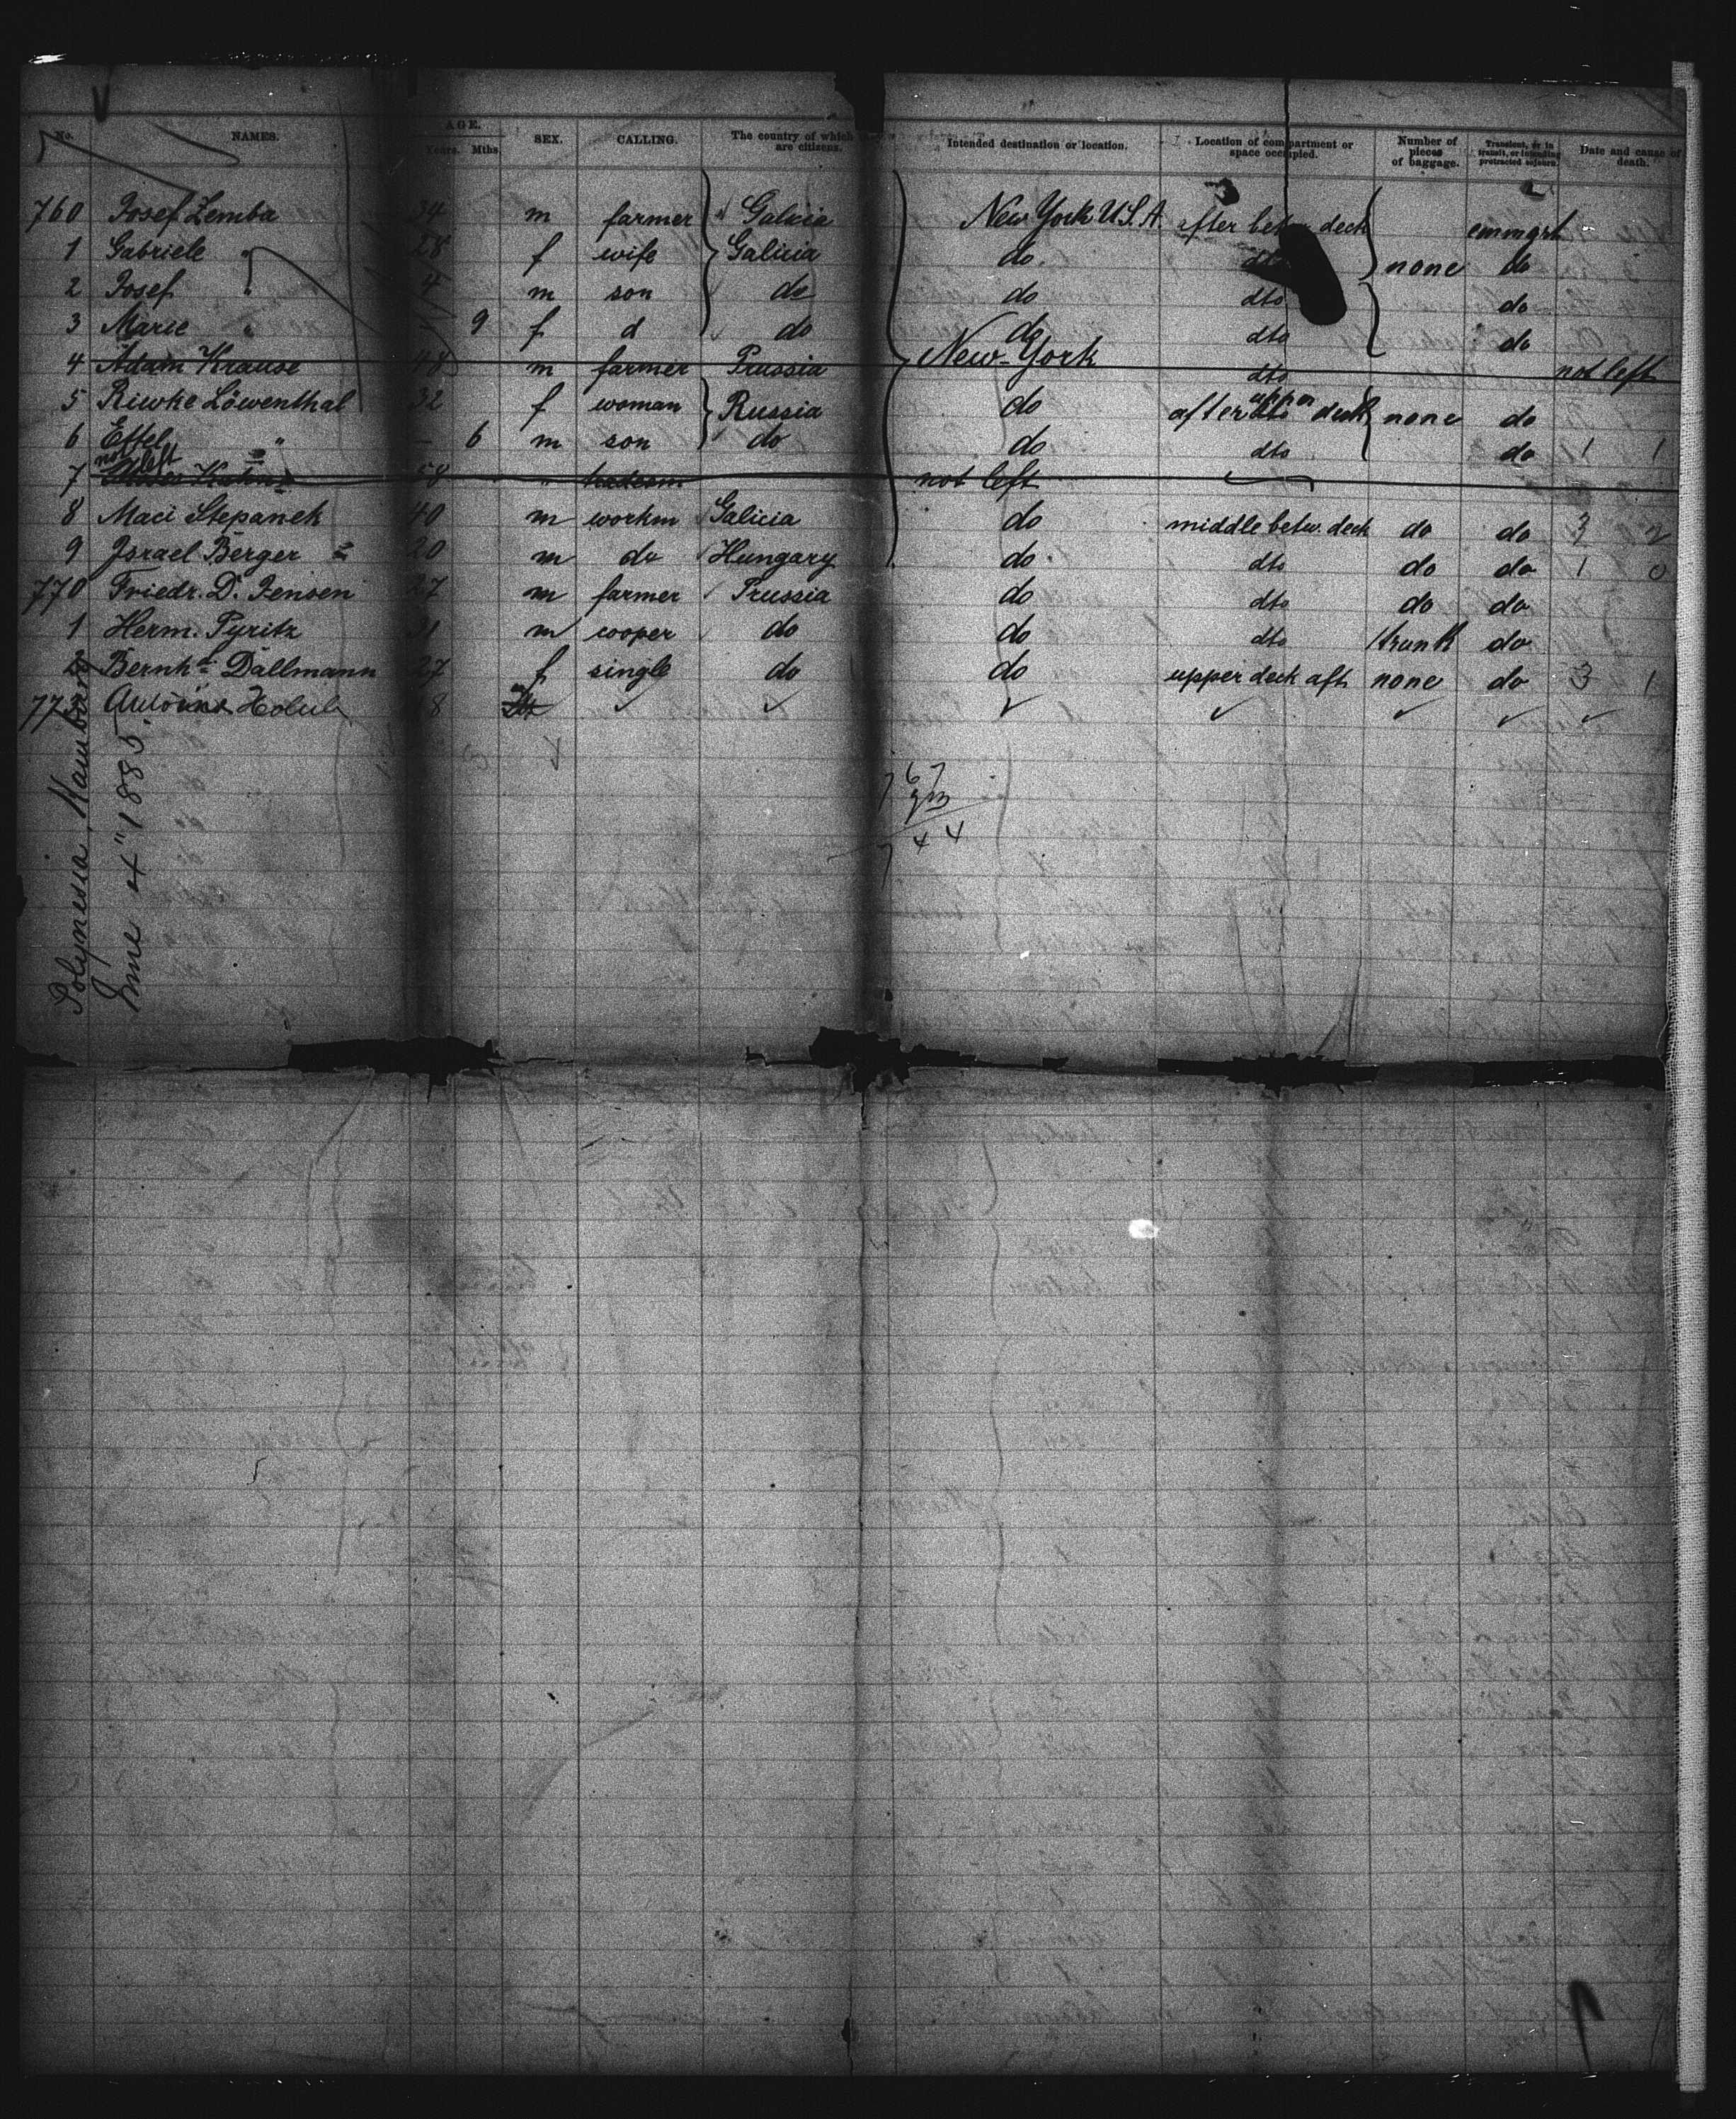 No. NAMES. AGE. Years. Mths. SEX. CALLING. The country of which are citizens. Intended destination or location. Location of compartment or space occupied. Number of pieces of baggage. Transient, or in transit, or intending protracted sojourn. Date and cause of death.
760 Josef Zemba 34 m farmer Galicia New York U.S.A. after betw deck emmgrt
1 Gabriele " 28 f wife Galicia do. dto none do
2 Josef " 4 m son do do dto do
3 Marie " - 9 f d do do dto do
4 Adam Krause 48 m farmer Prussia New-York dto not left
5 Riwke Löwenthal 32 f woman Russia do after upper deck none do
6 Ettel " - 6 m son do do dto do 1 1
not left
7 58 " not left
8 Maci Stepanek 40 m workm Galicia do middle betw. deck do do 3 2
9 Israel Berger 20 m do Hungary do. dto do do 1 0
770 Friedr. D. Jensen 27 m farmer Prussia do dto do do
1 Herm. Pyritz 31 m cooper do do dto 1 trunk do
2 Bernhd Dallmann 27 f single do do upper deck aft none do 3 1
773 Antoine Holub 8
767
23
744
Polynesia, Hamburg
June 4" 1885